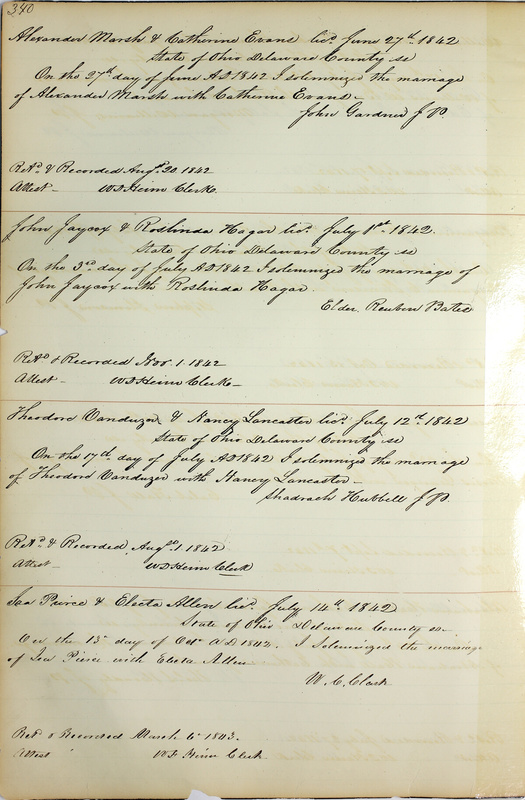 340
Alexander Marsh & Catherine Evans lic. June 27th 1842
State of Ohio Delaware County ss
On the 27th day of June AD 1842 I solemnized the marriage
of Alexander Marsh with Catherine Evans
John Gardner J P.
Retd. & Recorded Augt. 20. 1842
Attest W D Heim Clerk
John Jaycox & Roslinda Hagar lic. July 1st 1842.
State of Ohio Delaware County ss
On the 3rd day of July AD 1842 I solemnized the marriage of
John Jaycox with Roslinda Hagar
Elder. Reuben Bates
Retd & Recorded Nov. 1. 1842
Attest W D Heim Clerk
Theodore Vanduzer & Nancy Lancaster lic. July 12th 1842
State of Ohio Delaware County ss
On the 17th day of July AD 1842 I solemnized the marriage
of Theodore Vanduzer with Nancy Lancaster
Shadrach Hubbell J P.
Retd. & Recorded Aug. 1. 1842
Attest W D Heim Clerk
Isa Pierce & Electa Allen lic. July 14th 1842
State of Ohio Delaware County ss.
On the 13th day of Oct. AD 1842. I solemnized the marriage
of Isa Pierce with Electa Allen
W. C. Clark
Retd & Recorded March 6th 1843.
Attest W D Heim Clerk